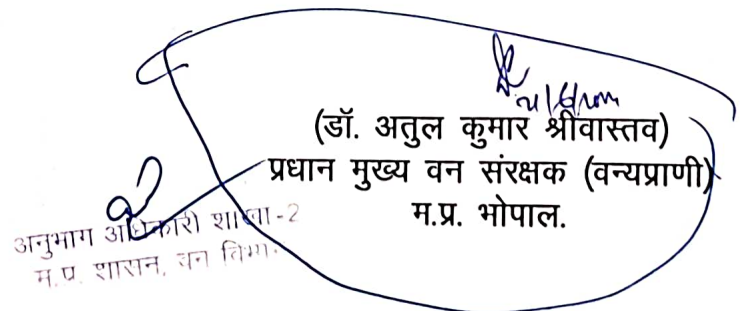 (डॉ. अतुल कुमार श्रीवास्तव)
प्रधान मुख्य वन संरक्षक (वन्यप्राणी)
म.प्र. भोपाल.
अनुभाग अधिकारी शाखा-2
म.प्र. शासन, वन विभाग